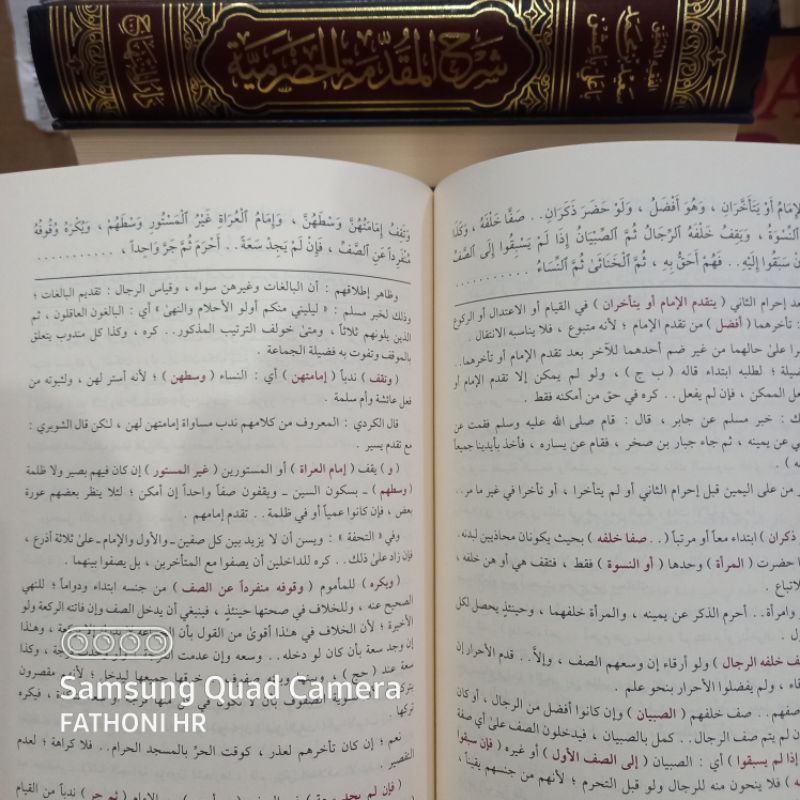 شرح المقدمة الحضرمية
سعيد بن محمد
باعلي باعشن
لإمام أو يتأخران ، وهو أفضل ، ولو حضر ذكران .. صفا خلفه ، وكذا
النسوة ، ويقف خلفه الرجال ثم الصبيان إذا لم يسبقوا إلى الصف
سبقوا إليه .. فهم أحق به ، ثم الخناثى ثم النساء
عد إحرام الثاني ( يتقدم الإمام أو يتأخران ) في القيام أو الاعتدال أو الركوع
تأخرهما ( أفضل ) من تقدم الإمام ؛ لأنه متبوع ، فلا يناسبه الانتقال .
را على حالهما من غير ضم أحدهما للآخر بعد تقدم الإمام أو تأخرهما ..
ضيلة ؛ لطلبه ابتداء قاله ( ب ج ) ، ولو لم يمكن إلا تقدم الإمام أو
عل الممكن ، فإن لم يفعل .. كره في حق من أمكنه فقط .
ك : خبر مسلم عن جابر ، قال : قام صلى الله عليه وسلم فقمت عن
ي عن يمينه ، ثم جاء جبار بن صخر ، فقام عن يساره ، فأخذ بأيدينا جميعاً
من على اليمين قبل إحرام الثاني أو لم يتأخرا ، أو تأخرا في غير ما مر ..
ذكران ) ابتداء معاً أو مرتباً ( .. صفا خلفه ) بحيث يكونان محاذيين لبدنه .
ا حضرت ( المرأة ) وحدها ( أو النسوة ) فقط ، فتقف هي أو هن خلفه ،
لاتباع .
وامرأة .. أحرم الذكر عن يمينه ، والمرأة خلفهما ، وحينئذٍ يحصل لكل
ف خلفه الرجال ) ولو أرقاء إن وسعهم الصف ، وإلاَّ .. قدم الأحرار إن
قاء ، ولم يفضلوا الأحرار بنحو علم .
صفهم .. صف خلفهم ( الصبيان ) وإن كانوا أفضل من الرجال ، أو كان
ن لم يتم صف الرجال .. كمل بالصبيان ، فيدخلون الصف على أي صفة
إذا لم يسبقوا ) أي : الصبيان ( إلى الصف الأول ) أو غيره ( فإن سبقوا
ه ) فلا ينحون منه للرجال ولو قبل التحرم ؛ لأنهم من جنسهم يقيناً ،
وتقف إمامتهن وسطهن ، وإمام العراة غير المستور وسطهم ، ويكره وقوفه
منفرداً عن الصف ، فإن لم يجد سعة .. أحرم ثم جر واحداً ،
وظاهر إطلاقهم : أن البالغات وغيرهن سواء ، وقياس الرجال : تقديم البالغات ؛
وذلك لخبر مسلم : « ليليني منكم أولو الأحلام والنهى » أي : البالغون العاقلون ، ثم
الذين يلونهم ثلاثاً ، ومتى خولف الترتيب المذكور .. كره ، وكذا كل مندوب يتعلق
بالموقف وتفوت به فضيلة الجماعة .
( وتقف ) ندباً ( إمامتهن ) أي : النساء ( وسطهن ) ؛ لأنه أستر لهن ، ولثبوته من
فعل عائشة وأم سلمة .
قال الكردي : المعروف من كلامهم ندب مساواة إمامتهن لهن ، لكن قال الشوبري :
مع تقدم يسير .
( و ) يقف ( إمام العراة ) أو المستورين ( غير المستور ) إن كان فيهم بصير ولا ظلمة
( وسطهم ) ـ بسكون السين ـ ويقفون صفاً واحداً إن أمكن ؛ لئلا ينظر بعضهم عورة
بعض ، فإن كانوا عمياً أو في ظلمة .. تقدم إمامهم .
وفي « التحفة » : ويسن أن لا يزيد بين كل صفين ـ والأول والإمام ـ على ثلاثة أذرع ،
فإن زاد على ذلك .. كره للداخلين أن يصفوا مع المتأخرين ، بل يصفوا بينهما .
( ويكره ) للمأموم ( وقوفه منفرداً عن الصف ) من جنسه ابتداء ودواماً ؛ للنهي
الصحيح عنه ، وللخلاف في صحتها حينئذٍ ، فينبغي أن يدخل الصف وإن فاتته الركعة ولو
الأخيرة ؛ لأن الخلاف في هذا أقوى من القول بأن
إن وجد سعة بأن كان لو دخله .. وسعه وإن عدمت
سعة عند ( حج ) ،
نعم ؛ إن كان تأخرهم لعذر ، كوقت الحرِّ بالمسجد الحرام .. فلا كراهة ؛ لعدم
التقصير .
Samsung Quad Camera
FATHONI HR